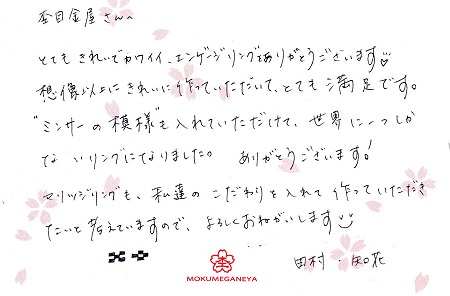 杢目金屋さんへ
とてもきれいでカワイイ、エンゲージリングをありがとうございます
想像以上にきれいに作っていただいて、とても満足です。
"ミンサーの模様"も入れていただけて、世界に一つしか
ないリングになりました。 ありがとうございます!
マリッジリングも、私達のこだわりを入れて作っていただき
たいと考えていますので、よろしくおねがいします
MOKUMEGANEYA
田村・知花